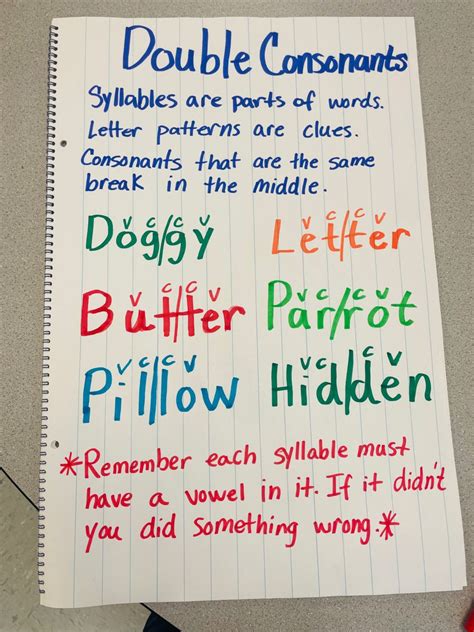 Double Consonants
Syllables are parts of words.
Letter patterns are clues.
Consonants that are the same
break in the middle.
v c c v
Dog/gy
v c c v
Let/ter
v c c v
But/ter
v c c v
Par/rot
v c c v
Pil/low
v c c v
Hid/den
*Remember each syllable must
have a vowel in it. If it didn't
you did something wrong.*